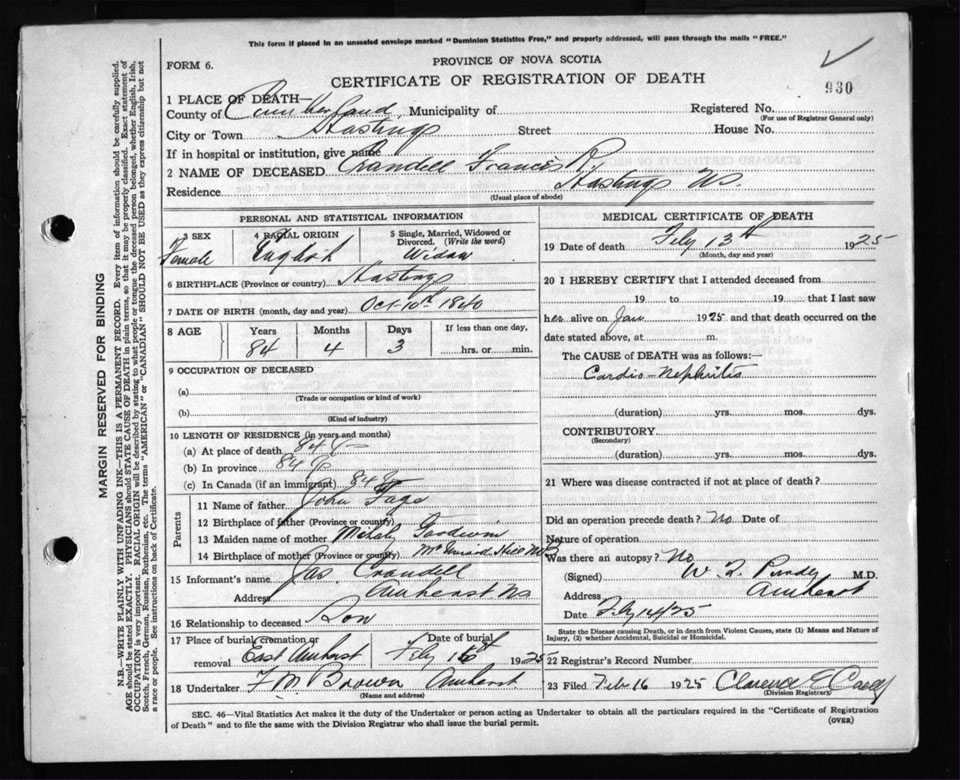 This form if placed in an unsealed envelope marked "Dominion Statistics Free," and properly addressed, will pass through the mails "FREE."
FORM 6.
PROVINCE OF NOVA SCOTIA
CERTIFICATE OF REGISTRATION OF DEATH
930
1 PLACE OF DEATH—
County of Cumberland, Municipality of Registered No.
(For use of Registrar General only)
City or Town Hastings Street House No.
If in hospital or institution, give name
2 NAME OF DECEASED Crandell Frances R.
Residence Hastings NS.
(Usual place of abode)
PERSONAL AND STATISTICAL INFORMATION
3 SEX
Female
4 RACIAL ORIGIN
English
5 Single, Married, Widowed or Divorced. (Write the word)
Widow
6 BIRTHPLACE (Province or country) Hastings
7 DATE OF BIRTH (month, day and year) Oct 10th 1840
8 AGE Years Months Days If less than one day,
84 4 3 hrs. or min.
9 OCCUPATION OF DECEASED
(a)
(Trade or occupation or kind of work)
(b)
(Kind of industry)
10 LENGTH OF RESIDENCE (in years and months)
(a) At place of death 84
(b) In province 84
(c) In Canada (if an immigrant) 84
Parents
11 Name of father John Fage
12 Birthplace of father (Province or country)
13 Maiden name of mother Goodwin
14 Birthplace of mother (Province or country)
15 Informant's name Jas. Crandell
Address Amherst NS
16 Relationship to deceased Son
17 Place of burial, cremation or removal East Amherst
Date of burial Feby 16th 1925
18 Undertaker F M Brown Amherst
(Name and address)
MEDICAL CERTIFICATE OF DEATH
19 Date of death Feby 13th 1925
(Month, day and year)
20 I HEREBY CERTIFY that I attended deceased from
19 to 19 that I last saw
her alive on Jan 1925 and that death occurred on the
date stated above, at m.
The CAUSE of DEATH was as follows:—
Cardio-Nephritis
(duration) yrs. mos. dys.
CONTRIBUTORY
(Secondary)
(duration) yrs. mos. dys.
21 Where was disease contracted if not at place of death?
Did an operation precede death? No Date of
Nature of operation
Was there an autopsy? No
(Signed) W. T. Purdy M.D.
Address Amherst
Date Feby 14/25
State the Disease causing Death, or in death from Violent Causes, state (1) Means and Nature of
Injury, (2) whether Accidental, Suicidal or Homicidal.
22 Registrar's Record Number
23 Filed Feb 16 1925 Clarence E
(Division Registrar)
SEC. 46—Vital Statistics Act makes it the duty of the Undertaker or person acting as Undertaker to obtain all the particulars required in the "Certificate of Registration
of Death" and to file the same with the Division Registrar who shall issue the burial permit.
(OVER)
MARGIN RESERVED FOR BINDING
N.B.—WRITE PLAINLY WITH UNFADING INK—THIS IS A PERMANENT RECORD. Every item of information should be carefully supplied.
AGE should be stated EXACTLY. PHYSICIANS should STATE CAUSE OF DEATH in plain terms, so that it may be properly classified. Exact statement of
OCCUPATION is very important. RACIAL ORIGIN will be described by stating to what people or tongue the deceased person belonged, whether English, Irish,
Scotch, French, German, Russian, Ruthenian, etc. The terms "AMERICAN" or "CANADIAN" SHOULD NOT BE USED as they express citizenship but not
a race or people. See instructions on back of Certificate.